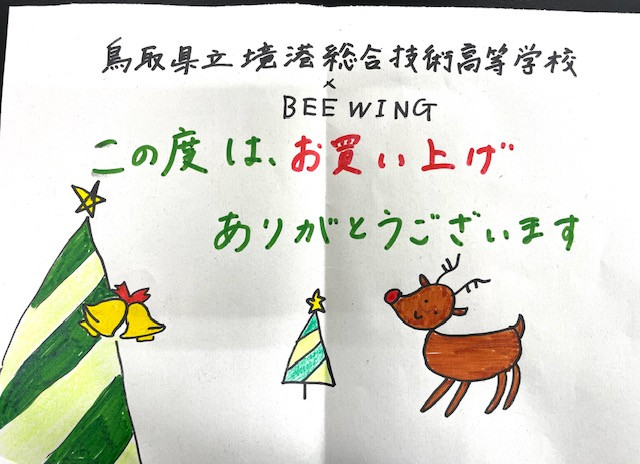 鳥取県立境港総合技術高等学校
×
BEE WING
この度は、お買い上げ
ありがとうございます